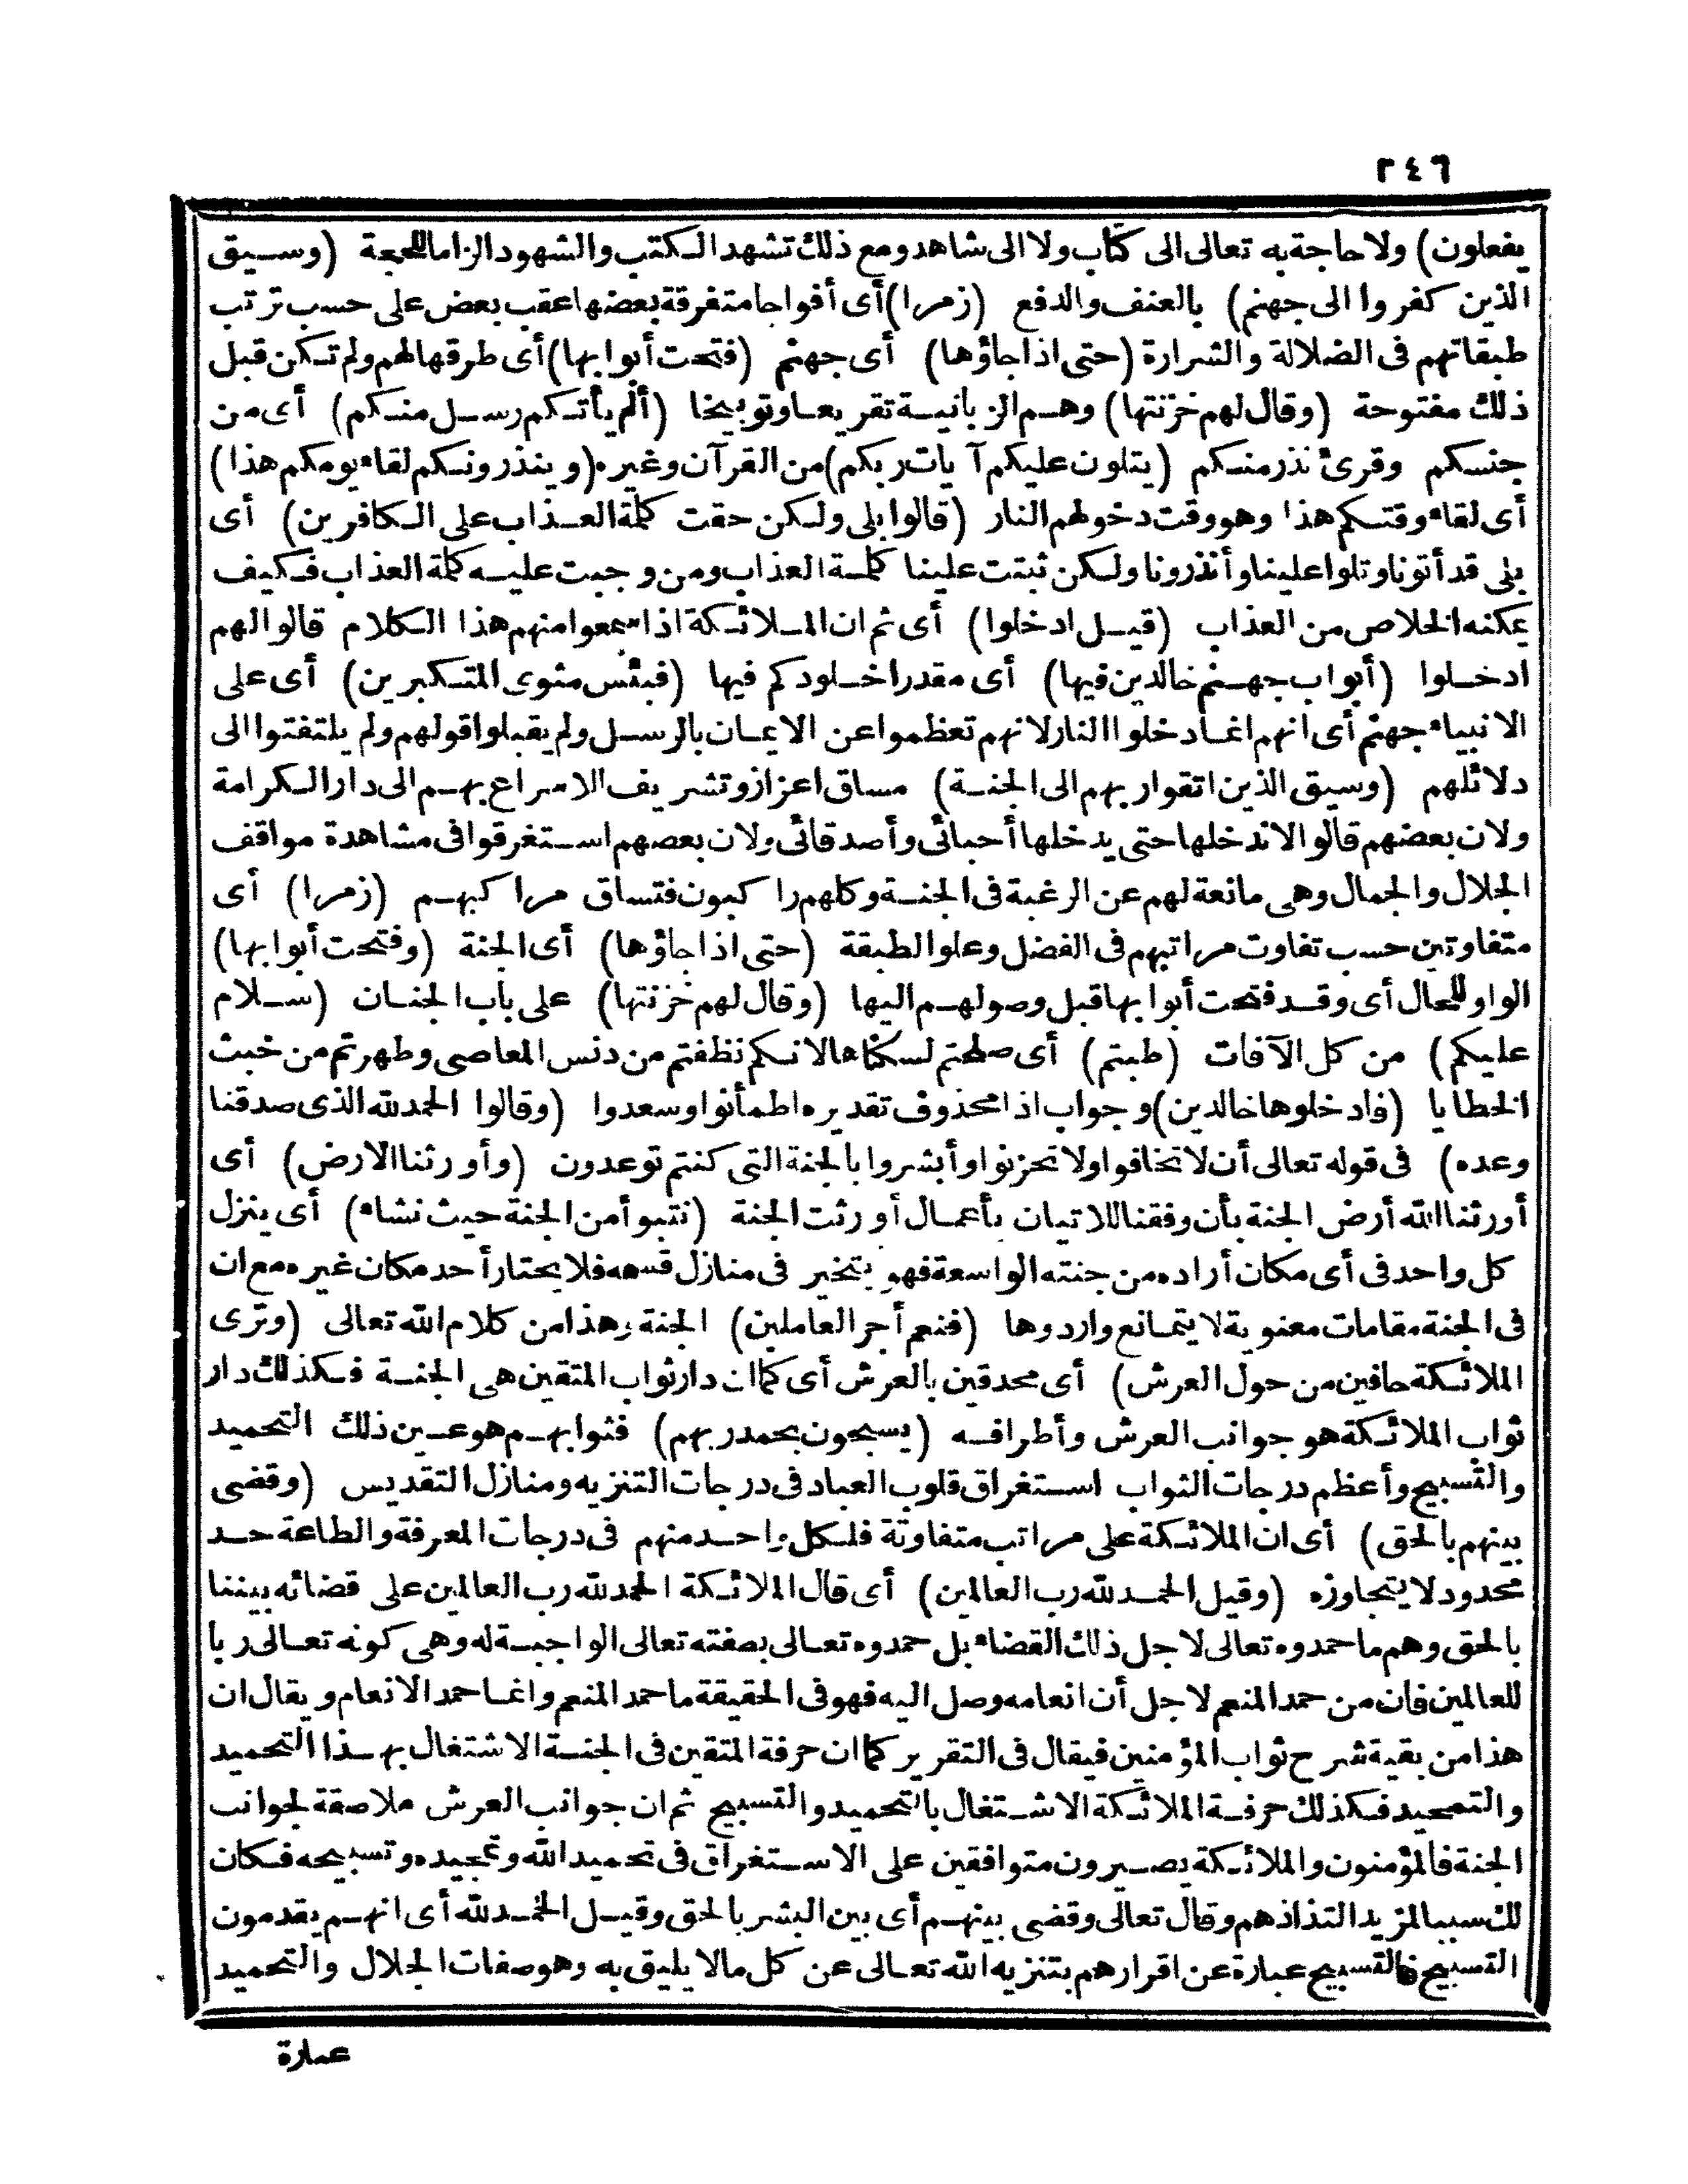 ٢٤٦
يفعلون) ولا حاجة به تعالى الى كتاب ولا الى شاهد ومع ذلك تشهد الكتب والشهود الزاما للحجة (وسيق
الذين كفروا الى جهنم) بالعنف والدفع (زمرا) أى أفواجا متفرقة بعضها عقب بعض على حسب ترتب
طبقاتهم فى الضلالة والشرارة (حتى اذا جاؤها) أى جهنم (فتحت أبوابها) أى طرقها لهم ولم تكن قبل
ذلك مفتوحة (وقال لهم خزنتها) وهم الزبانية تقريعا وتوبيخا (ألم يأتكم رسل منكم) أى من
جنسكم وقرئ نذر منكم (يتلون عليكم آيات ربكم) من القرآن وغيره (وينذرونكم لقاء يومكم هذا)
أى لقاء وقتكم هذا وهو وقت دخولهم النار (قالوا بلى ولكن حقت كلمة العذاب على الكافرين) أى
بلى قد أتونا وتلوا علينا وأنذرونا ولكن ثبتت علينا كلمة العذاب ومن وجبت عليه كلمة العذاب فكيف
يمكنه الخلاص من العذاب (قيل ادخلوا) أى ثم ان الملائكة اذا سمعوا منهم هذا الكلام قالوا لهم
ادخلوا (أبواب جهنم خالدين فيها) أى مقدرا خلودكم فيها (فبئس مثوى المتكبرين) أى على
الانبياء جهنم أى انهم انما دخلوا النار لانهم تعظموا عن الايمان بالرسل ولم يقبلوا قولهم ولم يلتفتوا الى
دلائلهم (وسيق الذين اتقوا ربهم الى الجنة) مساق اعزاز وتشريف الاسراع بهم الى دار الكرامة
ولان بعضهم قالوا لا ندخلها حتى يدخلها أحبائى وأصدقائى ولان بعضهم استغرقوا فى مشاهدة مواقف
الجلال والجمال وهى مانعة لهم عن الرغبة فى الجنة وكلهم راكبون فتساق مراكبهم (زمرا) أى
متفاوتين حسب تفاوت مراتبهم فى الفضل وعلو الطبقة (حتى اذا جاؤها) أى الجنة (وفتحت أبوابها)
الواو للحال أى وقد فتحت أبوابها قبل وصولهم اليها (وقال لهم خزنتها) على باب الجنان (سلام
عليكم) من كل الآفات (طبتم) أى صلحتم لسكناها لانكم نظفتم من دنس المعاصى وطهرتم من خبث
الخطايا (فادخلوها خالدين) وجواب اذا محذوف تقديره اطمأنوا وسعدوا (وقالوا الحمد لله الذى صدقنا
وعده) فى قوله تعالى أن لا تخافوا ولا تحزنوا وأبشروا بالجنة التى كنتم توعدون (وأورثنا الارض) أى
أورثنا الله أرض الجنة بأن وفقنا للاتيان بأعمال أورثت الجنة (نتبوأ من الجنة حيث نشاء) أى ينزل
كل واحد فى أى مكان أراده من جنته الواسعة فهو يتخير فى منازل قسمه فلا يختار أحد مكان غيره مع ان
فى الجنة مقامات معنوية لا يتمانع واردوها (فنعم أجر العاملين) الجنة وهذا من كلام الله تعالى (وترى
الملائكة حافين من حول العرش) أى محدقين بالعرش أى كما ان دار ثواب المتقين هى الجنة فكذلك دار
ثواب الملائكة هو جوانب العرش وأطرافه (يسبحون بحمد ربهم) فثوابهم هو عين ذلك التحميد
والتسبيح وأعظم درجات الثواب استغراق قلوب العباد فى درجات التنزيه ومنازل التقديس (وقضى
بينهم بالحق) أى ان الملائكة على مراتب متفاوتة فلكل واحد منهم فى درجات المعرفة والطاعة حد
محدود لا يتجاوزه (وقيل الحمد لله رب العالمين) أى قال الملائكة الحمد لله رب العالمين على قضائه بيننا
بالحق وهم ما حمدوه تعالى لاجل ذلك القضاء بل حمدوه تعالى بصفته تعالى الواجبة له وهى كونه تعالى ربا
للعالمين فان من حمد المنعم لاجل أن انعامه وصل اليه فهو فى الحقيقة ما حمد المنعم وانما حمد الانعام ويقال ان
هذا من بقية شرح ثواب المؤمنين فيقال فى التقرير كما ان حرفة المتقين فى الجنة الاشتغال بهذا التحميد
والتمجيد فكذلك حرفة الملائكة الاشتغال بالتحميد والتسبيح ثم ان جوانب العرش ملاصقة لجوانب
الجنة فالمؤمنون والملائكة يصيرون متوافقين على الاستغراق فى تحميد الله وتمجيده وتسبيحه فكان
لك سببا لمزيد التذاذهم وقال تعالى وقضى بينهم أى بين البشر بالحق وقيل الحمد لله أى انهم يقدمون
التسبيح فالتسبيح عبارة عن اقرارهم بتنزيه الله تعالى عن كل مالا يليق به وهو صفات الجلال والتحميد
عبارة